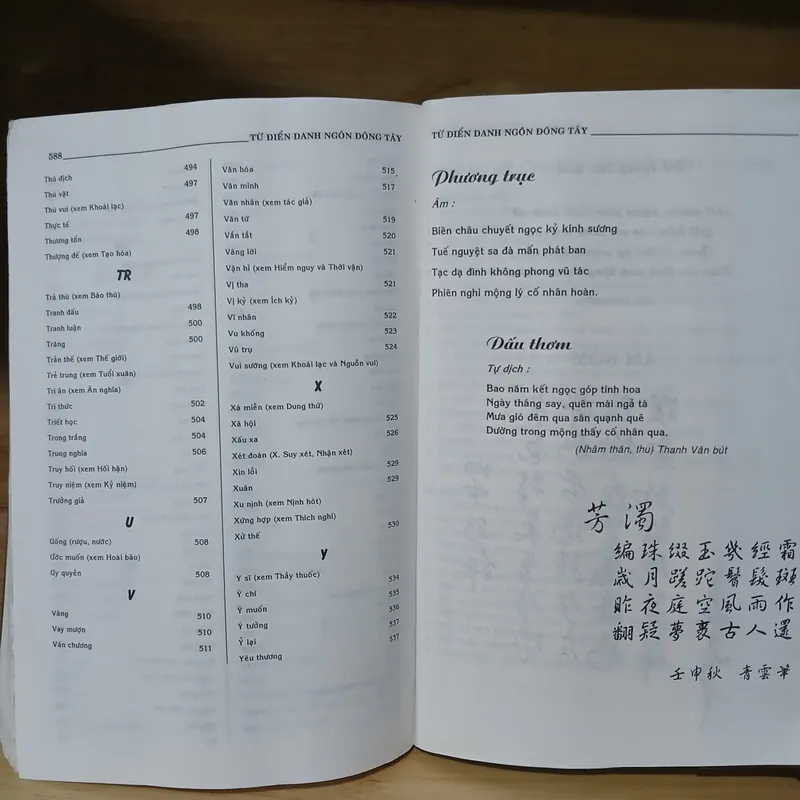 588 TỪ ĐIỂN DANH NGÔN ĐÔNG TÂY
Thù địch 494
Thú vật 497
Thú vui (xem Khoái lạc)
Thực tế 497
Thương tổn 498
Thượng đế (xem Tạo hóa)
TR
Trả thù (xem Báo thù)
Tranh đấu 498
Tranh luận 500
Trăng 500
Trần thế (xem Thế giới)
Trẻ trung (xem Tuổi xuân)
Tri ân (xem Ân nghĩa)
Tri thức 502
Triết học 504
Trong trắng 504
Trung nghĩa 506
Truy hối (xem Hối hận)
Truy niệm (xem Kỷ niệm)
Trưởng giả 507
U
Uống (rượu, nước) 508
Ước muốn (xem Hoài bão)
Ủy quyền 508
V
Vàng 510
Vay mượn 510
Văn chương 511
Văn hóa 515
Văn minh 517
Văn nhân (xem tác giả)
Văn từ 519
Vắn tắt 520
Vâng lời 521
Vận hỉ (xem Hiểm nguy và Thời vận)
Vị tha 521
Vị kỷ (xem Ích kỷ)
Vĩ nhân 522
Vu khống 523
Vũ trụ 524
Vui sướng (xem Khoái lạc và Nguồn vui)
X
Xá miễn (xem Dung thứ)
Xã hội 525
Xấu xa 526
Xét đoán (X. Suy xét, Nhận xét)
Xin lỗi 529
Xuân 529
Xu nịnh (xem Nịnh hót)
Xứng hợp (xem Thích nghi)
Xử thế 530
Y
Y sĩ (xem Thầy thuốc) 534
Ý chí 535
Ý muốn 536
Ý tưởng 537
Ỷ lại 537
Yêu thương
TỪ ĐIỂN DANH NGÔN ĐÔNG TÂY
Phương trục
Âm :
Biên châu chuyết ngọc kỷ kinh sương
Tuế nguyệt sa đà mấn phát ban
Tạc dạ đình không phong vũ tác
Phiên nghi mộng lý cố nhân hoàn.
Dấu thơm
Tự dịch :
Bao năm kết ngọc góp tinh hoa
Ngày tháng say, quên mái ngả tà
Mưa gió đêm qua sân quạnh quẽ
Dường trong mộng thấy cố nhân qua.
(Nhâm thân, thu) Thanh Vân bút
芳濁
編珠綴玉幾經霜
歲月蹉跎鬢髮斑
昨夜庭空風雨作
翻疑夢裏古人還
壬申秋 青雲筆